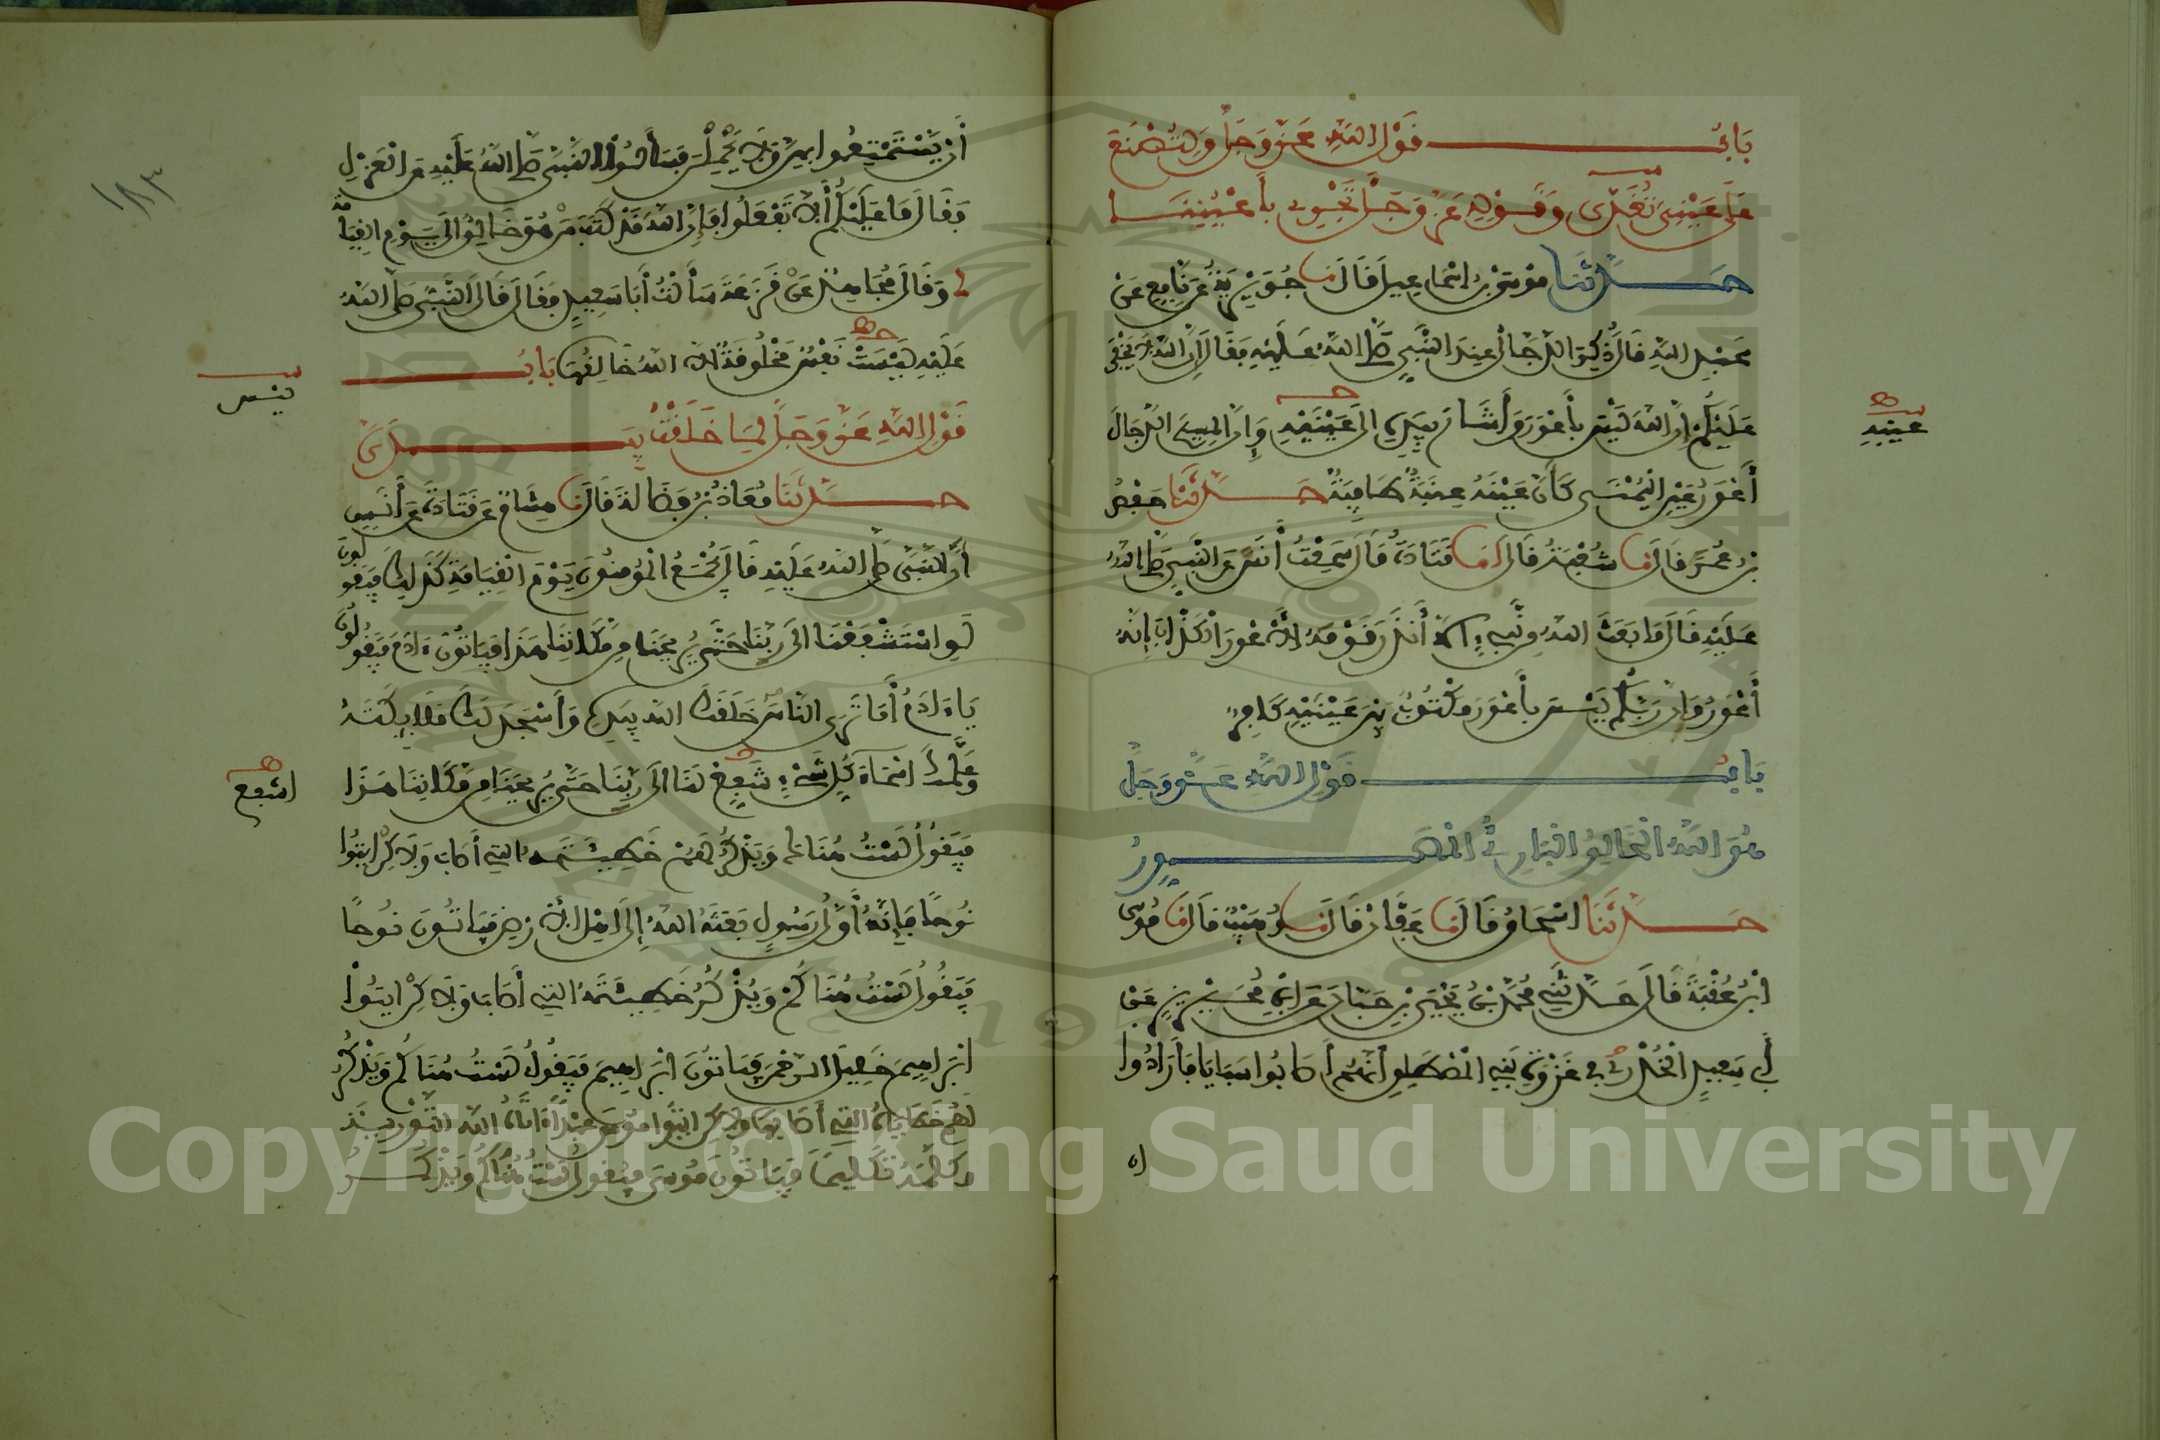 بَابُ قَوْلِ اللهِ عَزَّ وَجَلَّ وَلِتُصْنَعَ
عَلَى عَيْنِي تُغَذَّى وَقَوْلِهِ عَزَّ وَجَلَّ تَجْرِي بِأَعْيُنِنَا
حَدَّثَنَا مُوسَى بْنُ إِسْمَاعِيلَ قَالَ نا جُوَيْرِيَةُ عَنْ نَافِعٍ عَنْ
عَبْدِ اللهِ قَالَ ذُكِرَ الدَّجَّالُ عِنْدَ النَّبِيِّ صَلَّى اللهُ عَلَيْهِ فَقَالَ إِنَّ اللهَ لَا يَخْفَى
عَلَيْكُمْ إِنَّ اللهَ لَيْسَ بِأَعْوَرَ وَأَشَارَ بِيَدِهِ إِلَى عَيْنَيْهِ وَإِنَّ الْمَسِيحَ الدَّجَّالَ
عينيه
أَعْوَرُ عَيْنِ الْيُمْنَى كَأَنَّ عَيْنَهُ عِنَبَةٌ طَافِيَةٌ حَدَّثَنَا حَفْصُ
بْنُ عُمَرَ قَالَ نا شُعْبَةُ قَالَ أنا قَتَادَةُ قَالَ سَمِعْتُ أَنَسًا عَنِ النَّبِيِّ صَلَّى اللهُ
عَلَيْهِ قَالَ مَا بَعَثَ اللهُ مِنْ نَبِيٍّ إِلَّا أَنْذَرَ قَوْمَهُ الْأَعْوَرَ الْكَذَّابَ إِنَّهُ
أَعْوَرُ وَإِنَّ رَبَّكُمْ لَيْسَ بِأَعْوَرَ مَكْتُوبٌ بَيْنَ عَيْنَيْهِ كَافِرٌ
بَابُ قَوْلِ اللهِ عَزَّ وَجَلَّ
هُوَ اللهُ الْخَالِقُ الْبَارِئُ الْمُصَوِّرُ
حَدَّثَنَا إِسْحَاقُ قَالَ نا عَفَّانُ قَالَ نا وُهَيْبٌ قَالَ نا مُوسَى
ابْنُ عُقْبَةَ قَالَ حَدَّثَنِي مُحَمَّدُ بْنُ يَحْيَى بْنِ حَبَّانَ عَنِ ابْنِ مُحَيْرِيزٍ عَنْ
أَبِي سَعِيدٍ الْخُدْرِيِّ فِي غَزْوَةِ بَنِي الْمُصْطَلِقِ أَنَّهُمْ أَصَابُوا سَبَايَا فَأَرَادُوا
أن
أَنْ يَسْتَمْتِعُوا بِهِنَّ وَلَا يَحْمِلْنَ فَسَأَلُوا النَّبِيَّ صَلَّى اللهُ عَلَيْهِ عَنِ الْعَزْلِ
١٨٣
فَقَالَ مَا عَلَيْكُمْ أَلَّا تَفْعَلُوا فَإِنَّ اللهَ قَدْ كَتَبَ مَنْ هُوَ خَالِقٌ إِلَى يَوْمِ الْقِيَامَةِ
وَقَالَ مُجَاهِدٌ عَنْ قَزَعَةَ سَأَلْتُ أَبَا سَعِيدٍ فَقَالَ قَالَ النَّبِيُّ صَلَّى اللهُ
عَلَيْهِ لَيْسَتْ نَفْسٌ مَخْلُوقَةٌ إِلَّا اللهُ خَالِقُهَا بَابُ
ليس
قَوْلِ اللهِ عَزَّ وَجَلَّ لِمَا خَلَقْتُ بِيَدَيَّ
حَدَّثَنَا مُعَاذُ بْنُ فَضَالَةَ قَالَ نا هِشَامٌ عَنْ قَتَادَةَ عَنْ أَنَسٍ
أَنَّ النَّبِيَّ صَلَّى اللهُ عَلَيْهِ قَالَ يُجْمَعُ الْمُؤْمِنُونَ يَوْمَ الْقِيَامَةِ كَذَلِكَ فَيَقُولُونَ
لَوِ اسْتَشْفَعْنَا إِلَى رَبِّنَا حَتَّى يُرِيحَنَا مِنْ مَكَانِنَا هَذَا فَيَاتُونَ ءَادَمَ فَيَقُولُونَ
يَا ءَادَمُ أَمَا تَرَى النَّاسَ خَلَقَكَ اللهُ بِيَدِهِ وَأَسْجَدَ لَكَ مَلَائِكَتَهُ
وَعَلَّمَكَ أَسْمَاءَ كُلِّ شَيْءٍ شَفِّعْ لَنَا إِلَى رَبِّنَا حَتَّى يُرِيحَنَا مِنْ مَكَانِنَا هَذَا
اشفع
فَيَقُولُ لَسْتُ هُنَاكَ وَيَذْكُرُ لَهُمْ خَطِيئَتَهُ الَّتِي أَصَابَ وَلَكِنِ ايتُوا
نُوحًا فَإِنَّهُ أَوَّلُ رَسُولٍ بَعَثَهُ اللهُ إِلَى أَهْلِ الْأَرْضِ فَيَاتُونَ نُوحًا
فَيَقُولُ لَسْتُ هُنَاكُمْ وَيَذْكُرُ خَطِيئَتَهُ الَّتِي أَصَابَ وَلَكِنِ ايتُوا
إِبْرَاهِيمَ خَلِيلَ الرَّحْمَنِ فَيَاتُونَ إِبْرَاهِيمَ فَيَقُولُ لَسْتُ هُنَاكُمْ وَيَذْكُرُ
لَهُمْ خَطَايَاهُ الَّتِي أَصَابَهَا وَلَكِنِ ايتُوا مُوسَى عَبْدًا ءَاتَاهُ اللهُ التَّوْرِيَةَ
وَكَلَّمَهُ تَكْلِيمًا فَيَاتُونَ مُوسَى فَيَقُولُ لَسْتُ هُنَاكُمْ وَيَذْكُرُ
Copyright © King Saud University
1957